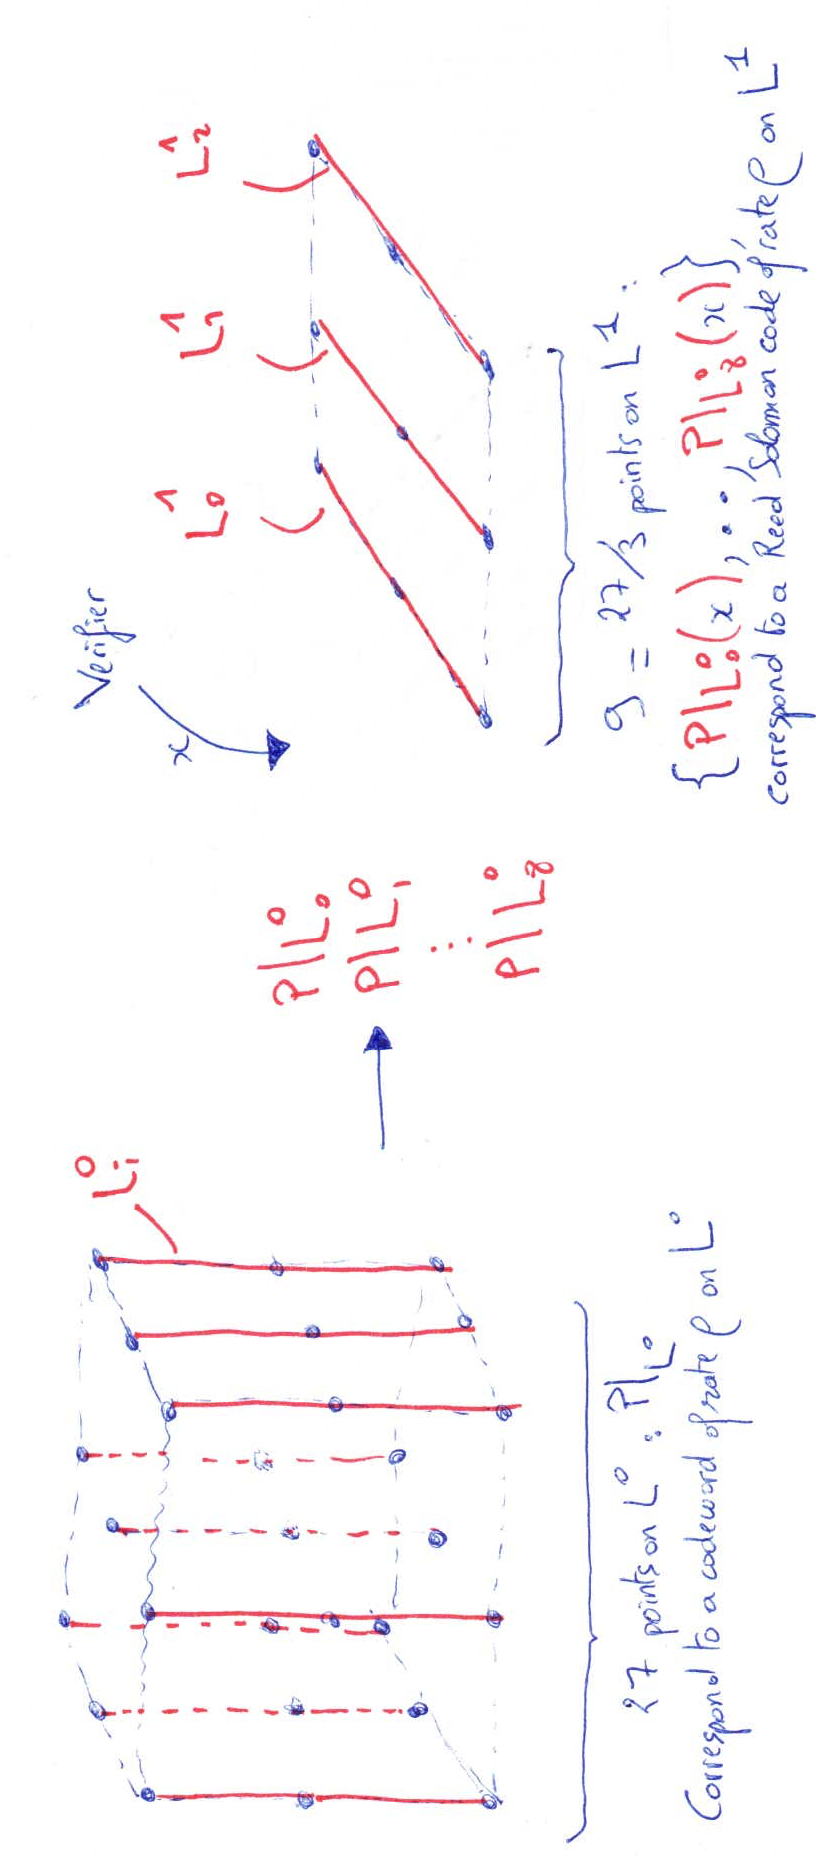 L⁰ᵢ
27 points on L⁰ : P|L⁰
Correspond to a codeword of rate ρ on L⁰
P|L⁰₀
P|L⁰₁
⋮
P|L⁰₈
Verifier
x
L¹₀
L¹₁
L¹₂
9 = 27/3 points on L¹ :
{P|L⁰₀(x), ..., P|L⁰₈(x)},
correspond to a Reed Solomon code of rate ρ on L¹